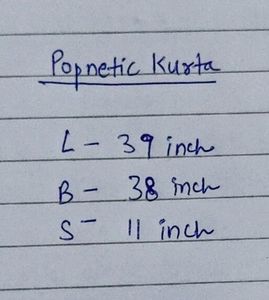 Popnetic Kurta
L - 39 inch
B - 38 inch
S - 11 inch